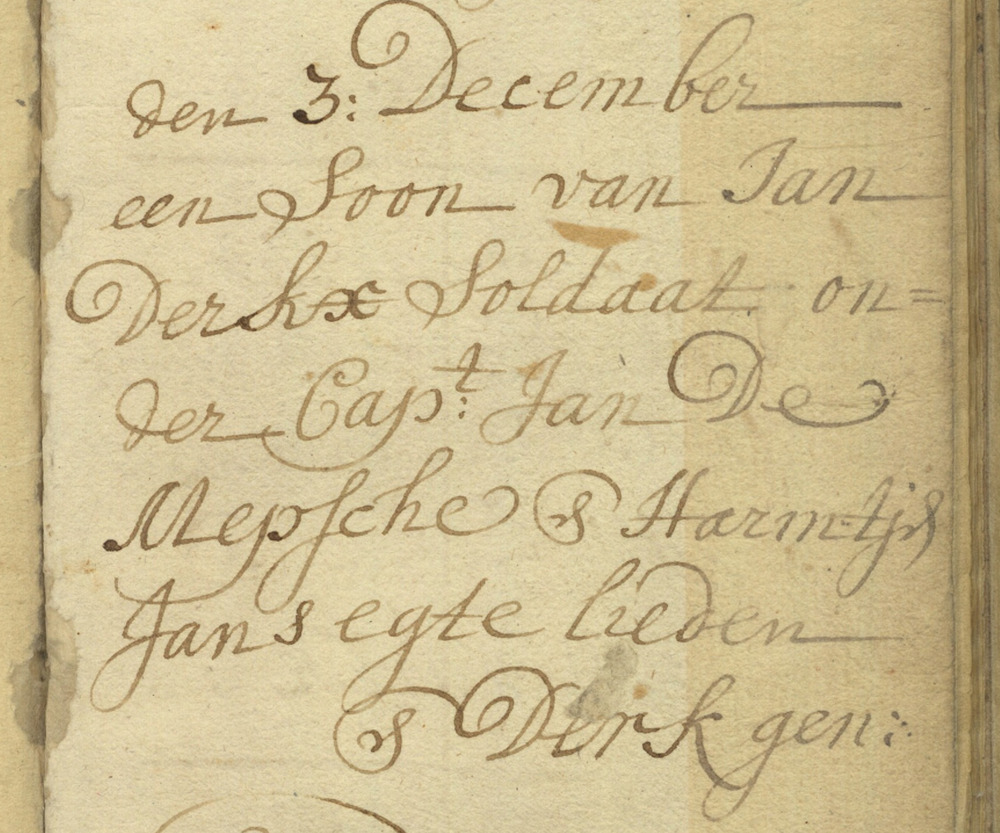 den 3: December
een Soon van Jan
Derkx Soldaat on=
der Capt: Jan De
Mepsche & Harmtjs
Jans egte lieden
& Derk gen: